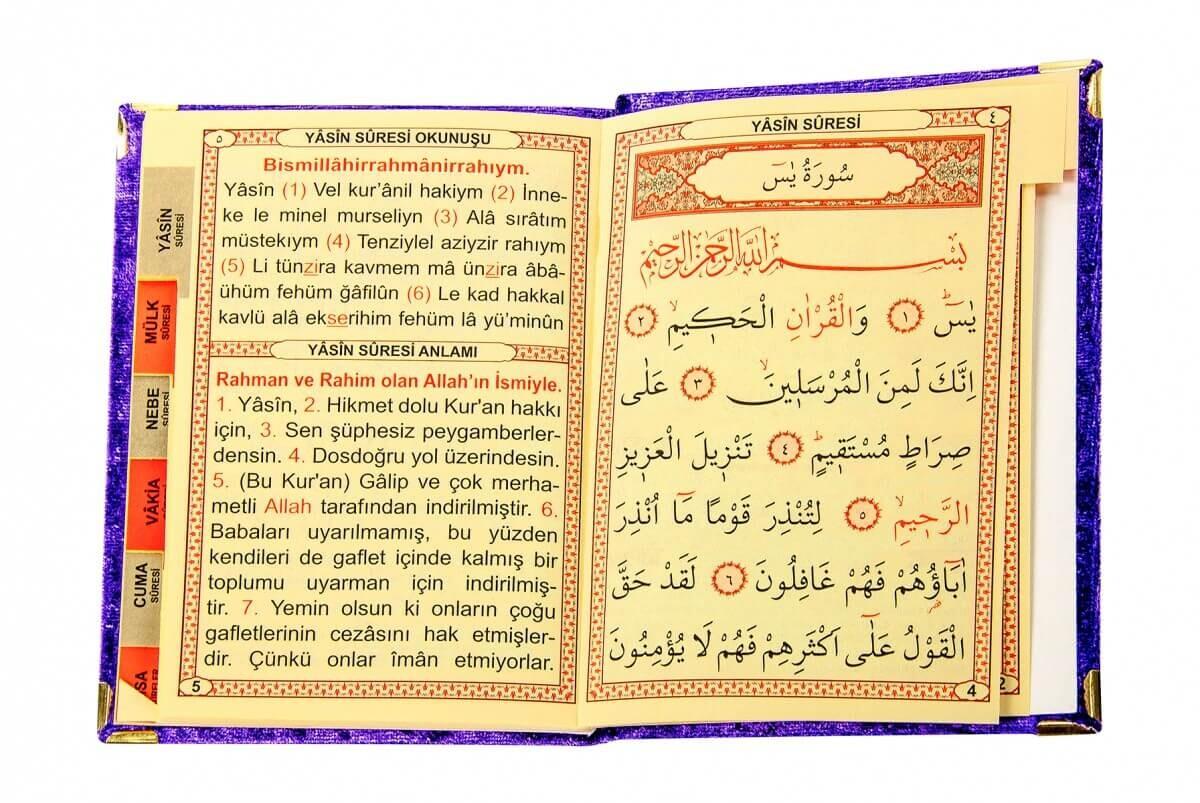 YÂSÎN SÛRESİ
٤
سُورَةُ يٰسٓ
بِسْمِ اللّٰهِ الرَّحْمٰنِ الرَّحٖيمِ
يٰسٓ ۚ ﴿١﴾ وَالْقُرْاٰنِ الْحَكٖيمِۙ ﴿٢﴾
اِنَّكَ لَمِنَ الْمُرْسَلٖينَۙ ﴿٣﴾ عَلٰى
صِرَاطٍ مُسْتَقٖيمٍؕ ﴿٤﴾ تَنْزٖيلَ الْعَزٖيزِ
الرَّحٖيمِۙ ﴿٥﴾ لِتُنْذِرَ قَوْمًا مَٓا اُنْذِرَ
اٰبَٓاؤُهُمْ فَهُمْ غَافِلُونَ ﴿٦﴾ لَقَدْ حَقَّ
الْقَوْلُ عَلٰٓى اَكْثَرِهِمْ فَهُمْ لَا يُؤْمِنُونَ
4
2
٥
YÂSÎN SÛRESİ OKUNUŞU
Bismillâhirrahmânirrahıym.
Yâsîn (1) Vel kur’ânil hakiym (2) İnne-
ke le minel murseliyn (3) Alâ sırâtım
müstekıym (4) Tenziylel aziyzir rahıym
(5) Li tünzira kavmem mâ ünzira âbâ-
ühüm fehüm ğâfilûn (6) Le kad hakkal
kavlü alâ ekserihim fehüm lâ yü’minûn
YÂSÎN SÛRESİ ANLAMI
Rahman ve Rahim olan Allah’ın İsmiyle.
1. Yâsîn, 2. Hikmet dolu Kur'an hakkı
için, 3. Sen şüphesiz peygamberler-
densin. 4. Dosdoğru yol üzerindesin.
5. (Bu Kur'an) Gâlip ve çok merha-
metli Allah tarafından indirilmiştir. 6.
Babaları uyarılmamış, bu yüzden
kendileri de gaflet içinde kalmış bir
toplumu uyarman için indirilmiş-
tir. 7. Yemin olsun ki onların çoğu
gafletlerinin cezâsını hak etmişler-
dir. Çünkü onlar îmân etmiyorlar.
5
YÂSÎN
SÛRESİ
MÜLK
SÛRESİ
NEBE
SÛRESİ
VÂKIA
CUMA
SÛRESİ